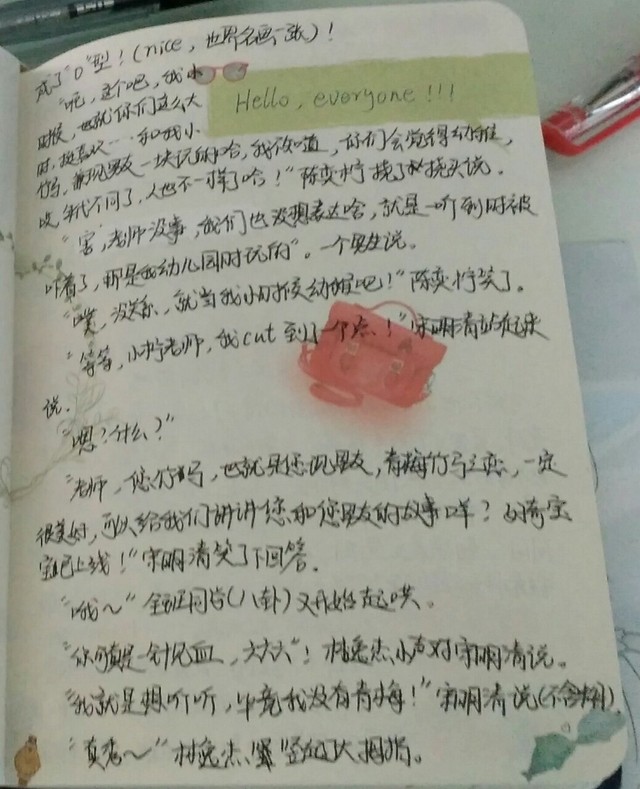 成了"O"型！(nice，世界名画一张)！
"呃，这个吧，我小
Hello, everyone!!!
时候，也就你们这么大
时，挺喜欢……和我小
竹马，兼现男友一块玩的哈，我知道，你们会觉得幼稚，
吱，年代不同了，人也不一样了哈！"陈奕柠挠了挠头说。
"害，老师没事，我们也没想表达啥，就是一听到时被
吓着了，那是我幼儿园时玩的"。一个男生说。
"噗，没关系，就当我小时候幼稚吧！"陈奕柠笑了。
"等等，小柠老师，我cut到了一个点！"宋明清站起来
说。
"嗯？什么？"
"老师，您竹马，也就是您现男友，青梅竹马之恋，一定
很美好，可以给我们讲讲您和您男友的故事咩？好奇宝
宝已上线！"宋明清笑了下回答。
"哦～"全班同学(八卦)又开始起哄。
"你可真是一针见血，六六六"！林逸杰小声对宋明清说。
"我就是想听听，毕竟我没有青梅！"宋明清说
"真惹～"林逸杰竖起了大拇指。